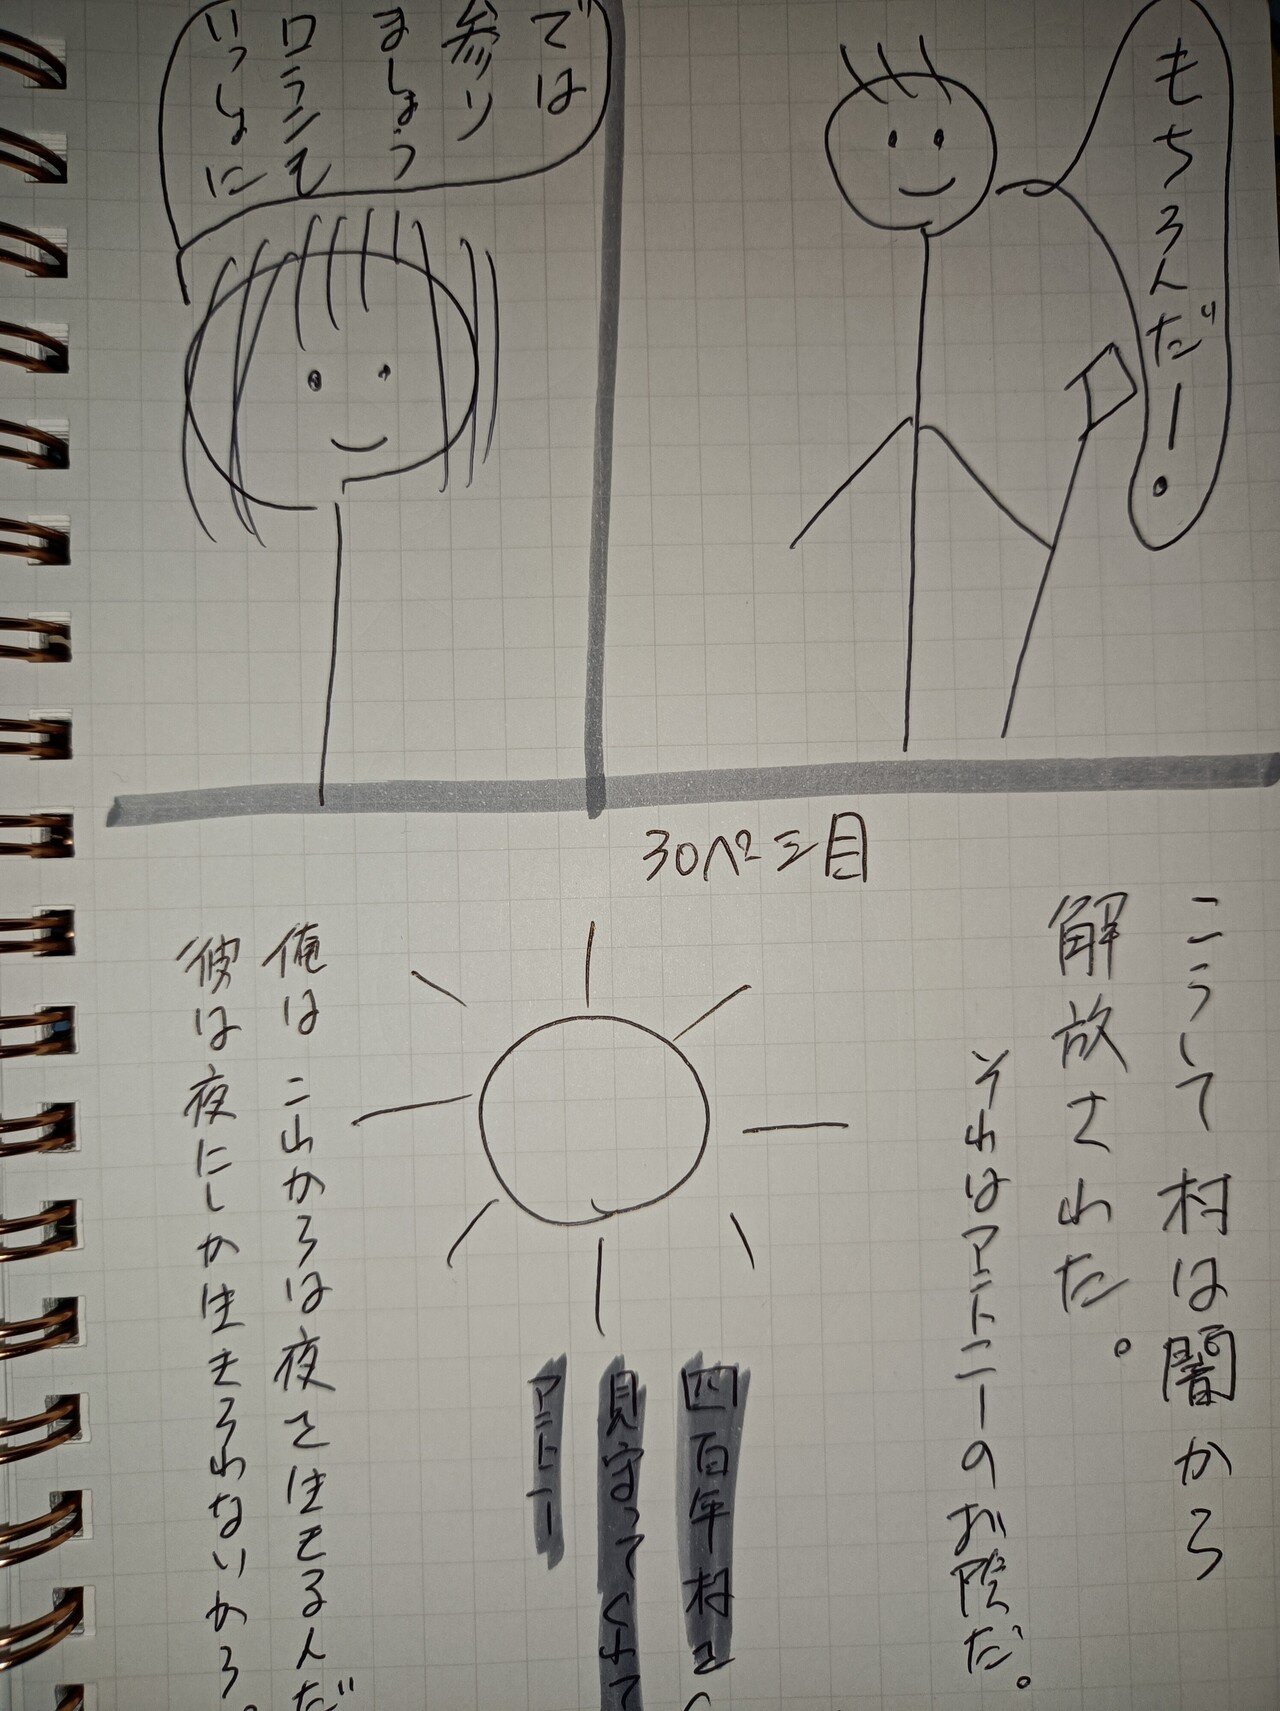 もちろんだー。
では
参り
ましょう
ロランも
いっしょに
30ページ目
こうして村は闇から
解放された。
それはアントニーのお陰だ。
四百年村を
見守ってくれて
アントニー
俺はこれからは夜を生きるんだ
彼は夜にしか生きられないから。